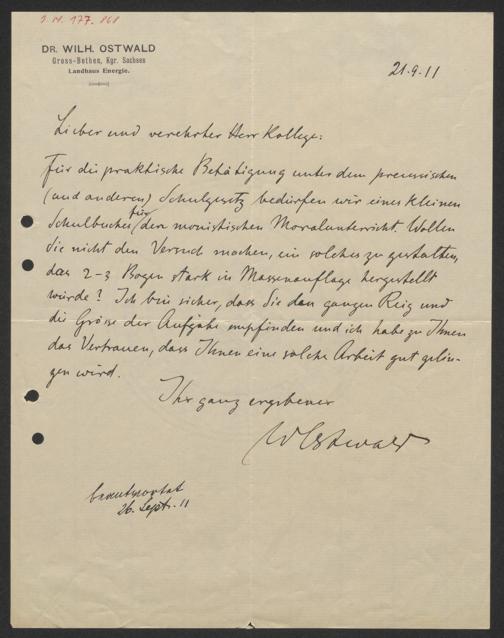 I.N. 177.868
DR. WILH. OSTWALD
Gross-Bothen, Kgr. Sachsen
Landhaus Energie.
21.9.11
Lieber und verehrter Herr Kollege:
Für die praktische Betätigung unter dem preussischen
(und anderen) Schulgesetz bedürfen wir eines kleinen
Schulbuches für den monistischen Moralunterricht. Wollen
Sie nicht den Versuch machen, ein solches zu gestalten,
das 2-3 Bogen stark in Massenauflage hergestellt
würde? Ich bin sicher, dass Sie den ganzen Reiz und
die Grösse der Aufgabe empfinden und ich habe zu Ihnen
das Vertrauen, dass Ihnen eine solche Arbeit gut gelin-
gen wird.
Ihr ganz ergebener
WOstwald
beantwortet
26. Sept. 11